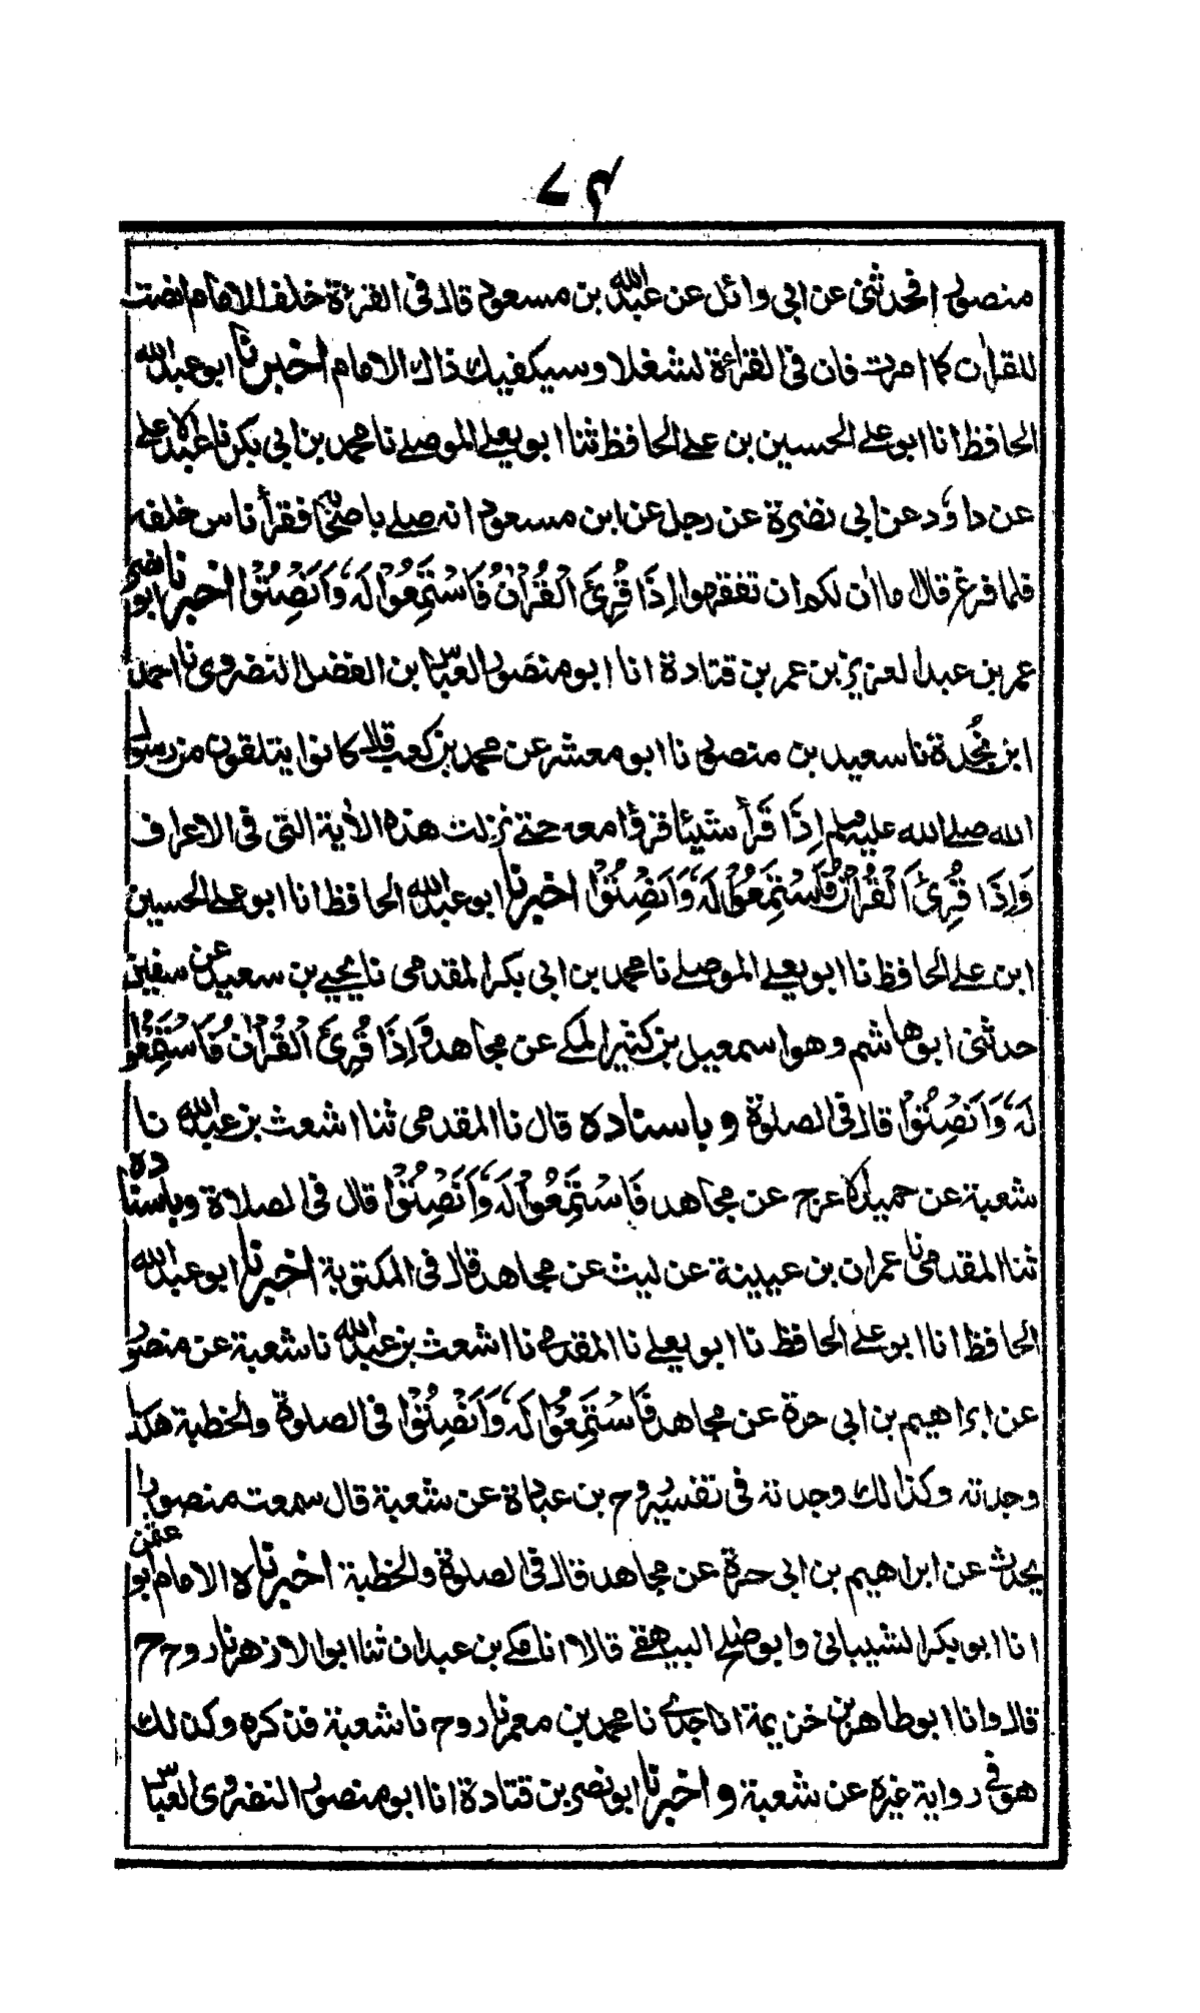 ۷۴
منصور افحدثنی عن ابی وائل عن عبد الله بن مسعود قال فی القرءة خلف الامام انصت
للقران کما امرت فان فی القراءة لشغلا وسیکفیك ذاك الامام اخبرنا ابو عبد الله
الحافظ انا ابو علی الحسین بن علی الحافظ ثنا ابو یعلی الموصلی نا محمد بن ابی بکر نا عبد الاعلی
عن داؤد عن ابی نضرة عن رجل عن ابن مسعود انه صلی باصحابه فقرأ ناس خلفه
فلما فرغ قال ما اٰن لکم ان تفقهوا اِذَا قُرِئَ الْقُرْاٰنُ فَاسْتَمِعُوْا لَهٗ وَاَنْصِتُوْا اخبرنا ابو نصر
عمر بن عبد العزیز بن عمر بن قتادة انا ابو منصور العباس ابن الفضل النضروی نا احمد
ابن نجدة نا سعید بن منصور نا ابو معشر عن محمد بن کعب قال کانوا یتلقون من رسول
الله صلی الله علیه وسلم اِذَا قَرَأَ شیئا قرؤا معه حتی نزلت هذه الاٰیة التی فی الاعراف
وَاِذَا قُرِئَ الْقُرْاٰنُ فَاسْتَمِعُوْا لَهٗ وَاَنْصِتُوْا اخبرنا ابو عبد الله الحافظ انا ابو علی الحسین
ابن علی الحافظ نا ابو یعلی الموصلی نا محمد بن ابی بکر المقدمی نا یحیی بن سعید عن سفین
حدثنی ابو هاشم وهو اسمعیل بن کثیر المکی عن مجاهد وَاِذَا قُرِئَ الْقُرْاٰنُ فَاسْتَمِعُوْا
لَهٗ وَاَنْصِتُوْا قال فی الصلوة وباسناده قال نا المقدمی ثنا اشعث بن عبد الله نا
شعبة عن حمید الاعرج عن مجاهد فَاسْتَمِعُوْا لَهٗ وَاَنْصِتُوْا قال فی الصلاة وباسناده
ثنا المقدمی نا عمران بن عیینة عن لیث عن مجاهد قال فی المکتوبة اخبرنا ابو عبد الله
الحافظ انا ابو علی الحافظ نا ابو یعلی نا المقدمی نا اشعث بن عبد الله نا شعبة عن منصور
عن ابراهیم بن ابی حرة عن مجاهد فَاسْتَمِعُوْا لَهٗ وَاَنْصِتُوْا فی الصلوة والخطبة هکذا
وجدته وکذالك وجدته فی تفسیر روح بن عبادة عن شعبة قال سمعت منصورا
یحدث عن ابراهیم بن ابی حرة عن مجاهد قال فی الصلوة والخطبة اخبرناه الامام ابو عثمن
انا ابو بکر الشیبانی وابو صلح البیهقی قالا انا مکی بن عبدان ثنا ابو الازهر نا روح ح
قال وانا ابو طاهر بن خزیمة انا جدی نا محمد بن معمر نا روح نا شعبة فذکره وکذلك
هو فی روایة غیره عن شعبة و اخبرنا ابو نصر بن قتادة انا ابو منصور النضروی العباس